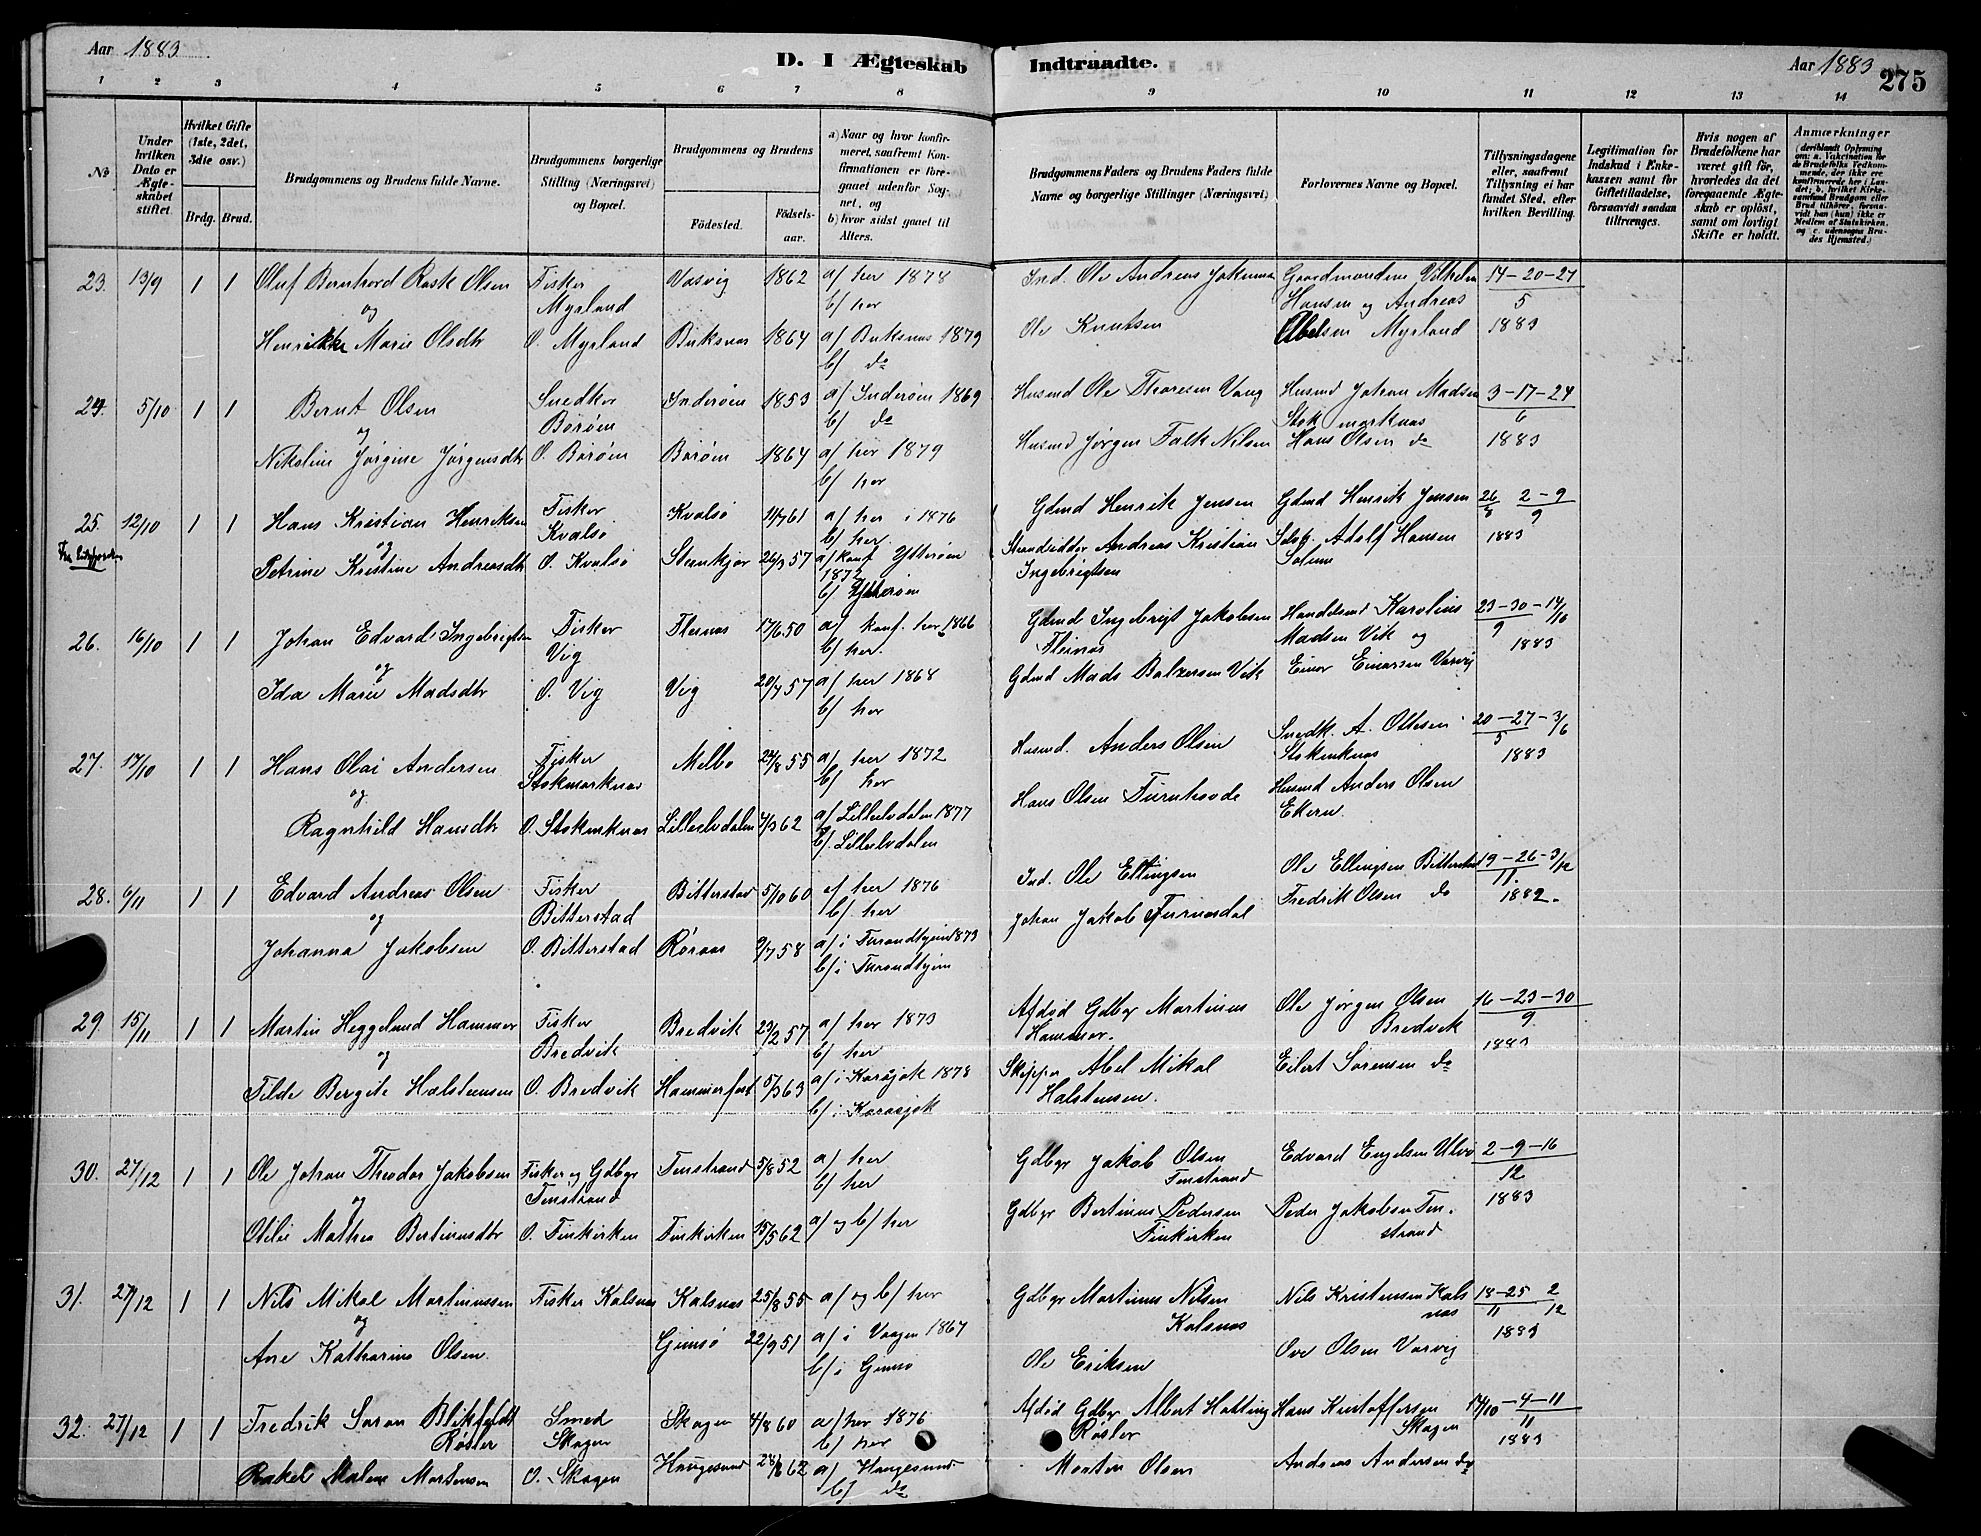 Aar 1883
D. I Ægteskab Indtraadte.
Aar 1883
275
1 2 3 4 5 6 7 8 9 10 11 12 13 14
No
Under hvilken Dato er Ægteskabet stiftet.
Hvilket Gifte (1ste, 2det, 3die osv.)
Brdg. Brud.
Brudgommens og Brudens fulde Navne.
Brudgommens borgerlige Stilling (Næringsvei) og Bopæl.
Brudgommens og Brudens
Fødested.
Fødselsaar.
a) Naar og hvor konfirmeret, saafremt Konfirmationen er foregaaet udenfor Sognet, og
b) hvor sidst gaaet til Alters.
Brudgommens Faders og Brudens Faders fulde Navne og borgerlige Stillinger (Næringsvei)
Forlovernes Navne og Bopæl.
Tillysningsdagene eller, saafremt Tillysning ei har fundet Sted, efter hvilken Bevilling.
Legitimation for Indskud i Enkekassen samt for Giftetilladelse, forsaavidt saadan tiltrænges.
Hvis nogen af Brudefolkene har været gift før, hvorledes da det foregaaende Ægteskab er opløst, samt om lovligt Skifte er holdt.
Anmærkninger
23. 13/9 1 1 Oluf Bernhord Rask Olsen Fisker Vasvig 1862 a/ her 1878 Ind. Ole Andreas Gaardmændene Vilhelm 14-20-27
og Myrland b/ her Hansen og Andreas 5
Henrikke Marie Olsdtr O. Myrland Buksnæs 1864 a/ Buksnæs 1879 Ole Knutsen Abelsen Myrland 1883
b/ do
24. 5/10 1 1 Bernt Olsen Snedker Inderøen 1853 a/ Inderøen 1869 Husmd Ole Thoresen Vang Husmd Johan Madsen 3-17-24
og Børøen b/ do Stokmarknæs 6
Nikoline Jørgine Jørgensdtr O. Børøen Børøen 1864 a/ her 1879 Husmd Jørgen Falk Nilsen Hans Olsen do 1883
b/ her
25. 12/10 1 1 Hans Kristian Henriksen Fisker Kvalsø 11/7 61 a/ her i 1876 Gdmd Henrik Jensen Gdmd Henrik Jensen 26/8 2-9
og Kvalsø b/ her. 9
Petrine Kristine Andreasdtr O. Kvalsø Stenkjær 26/3 57 a/ konf. Ytterøen Strandsidder Andreas Kristian Adolf Hansen 1883
1872 Ingebrigtsen Solum
b/ Ytterøen
26. 16/10 1 1 Johan Edvard Ingebrigtsen Fisker Flesnæs 17/6 50 a/ konf. her 1866 Gdmd Ingebrigt Jakobsen Handelsmd Karolius 23-30-14/16
og Vig b/ her. Flesnæs Madsen Vik og 9
Ida Marie Madsdtr O. Vig Vig 20/7 57 a/ her 1868 Gdmd Mads Balzersen Vik Einar Einarsen Varvig 1883
b/ her
27. 17/10 1 1 Hans Olai Andersen Fisker Melbo 24/8 55 a/ her 1872 Husmd. Anders Olsen Snedk. A. Ottesen 20-27-3/6
og Stokmarknæs b/ her Stokmknæs 5 1883
Ragnhild Hansdtr O. Stokmknæs Lilleelvdalen 4/3 62 a/ Lilleelvdalen 1877 Hans Olsen Turnhovde Husmd Anders Olsen
b/. Lilleelvdalen Ekern.
28. 6/11 1 1 Edvard Andreas Olsen Fisker Bitterstad 5/10 60 a/ her 1876 Ind. Ole Ellingsen Ole Ellingsen Bitterstad 19-26-3/12
og Bitterstad b/ her Fredrik Olsen do 11. 1882.
Johanna Jakobsen O. Bitterstad Røraas 9/7 58 a/ i Trondhjem 1873 Johan Jakob Furnesdal
b/ i Trondhjem
29. 15/11 1 1 Martin Heggelund Hammer Fisker Bredvik 23/2 57 a/ her 1873 Afdød Gdbgr Martinus Ole Jørgen Olsen 16-23-30
og Bredvik b/ her Hammer. Bredvik 9
Tilde Bergite Halstensen O. Bredvik Hammerfest 5/3 63 a/ i Karasjok 1878 Skipper Abel Mikal Eilert Sørensen do 1883
b/ i Karasjok Halstensen.
30. 27/12 1 1 Ole Johan Theodor Jakobsen Fisker og Gdbgr Finstrand 5/8 52 a/ her Gdbgr Jakob Olsen Edvard Engelsen Ulvø 2-9-16
og Finstrand b/ her Finstrand 12
Otilie Mathea Bertinusdtr O. Finkirken Finkirken 15/5 62 a/ og b/ her Gdbgr Bertinus Pedersen Peder Jakobsen Fin- 1883
Finkirken strand
31. 27/12 1 1 Nils Mikal Martinussen Fisker Kalsnæs Kalsnæs 25/8 55 a/ og b/ her Gdbgr Martinus Nilsen Nils Kristensen Kals 18-25 2
og Kalsnæs næs 11 12
Ane Katharine Olsen. Gimsø 22/9 51 a/ i Vaagen 1867 Ole Eriksen Ove Olsen Varvig 1883
b/ i Gimsø
32. 27/12 1 1 Fredrik Søren Blikfeldt Smed Skagen 4/8 60 a/ her 1876 Afdød Gdbgr Albert Hatting Hans Kristoffersen 14/10-4-11
Røsler Skagen b/ her Røsler Skagen 11
Rakel Malene Mortensen O. Skagen Haugesund 24/8 62 a/ Haugesund Morten Olsen Andreas Andersen do 1883
b/ do